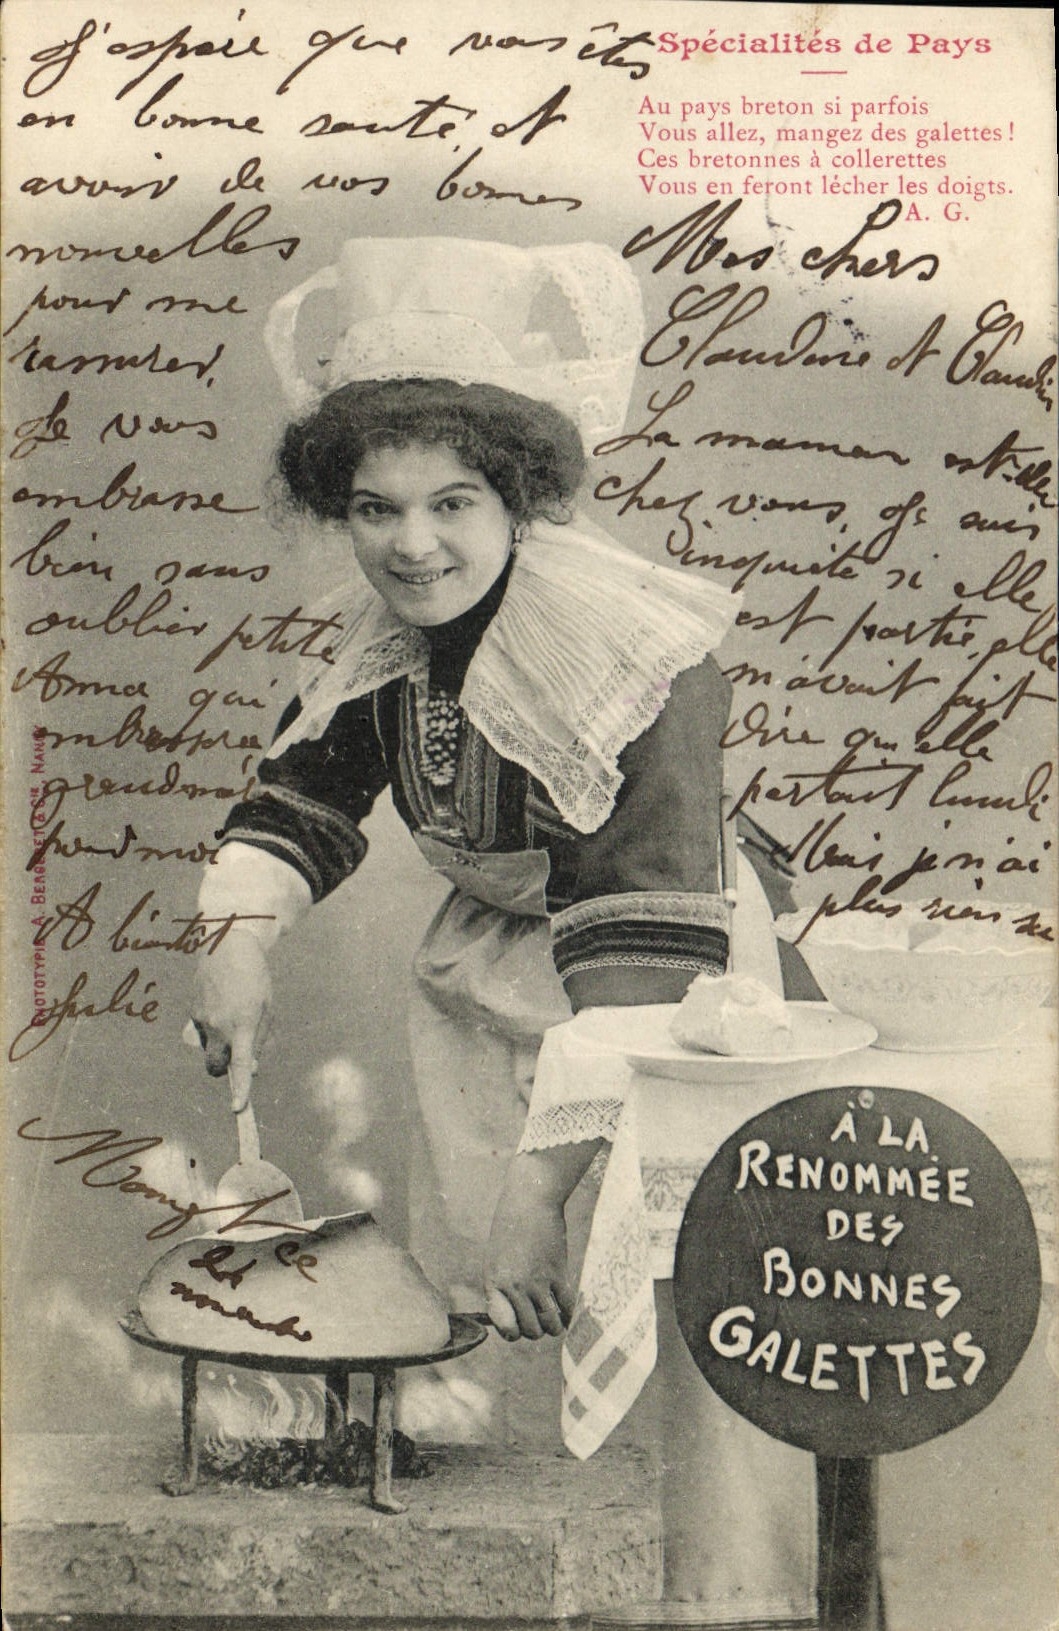 Spécialités de Pays
Au pays breton si parfois
Vous allez, mangez des galettes !
Ces bretonnes à collerettes
Vous en feront lécher les doigts.
A. G.
Mes chers
Claudine et Claudin
La maman est-elle
chez vous, Je suis
inquiète si elle
est partie, elle
m'avait fait
dire qu'elle
partait lundi
Mais je n'ai
plus rien su
J'espère que vous êtes
en bonne santé, et
avoir de vos bonnes
nouvelles
pour me
rassurer,
Je vous
embrasse
bien sans
oublier petite
Anna qui
grand
pour moi
A bientôt
Julie
ce
novembre
À LA
RENOMMÉE
DES
BONNES
GALETTES
PHOTOTYPIE A. BERGERET & Cie NANCY